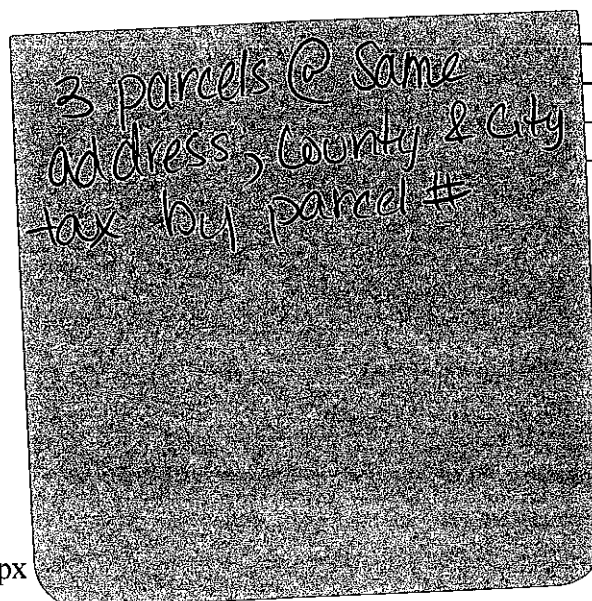 3 parcels @ Same
address, County & City
tax by parcel #
px